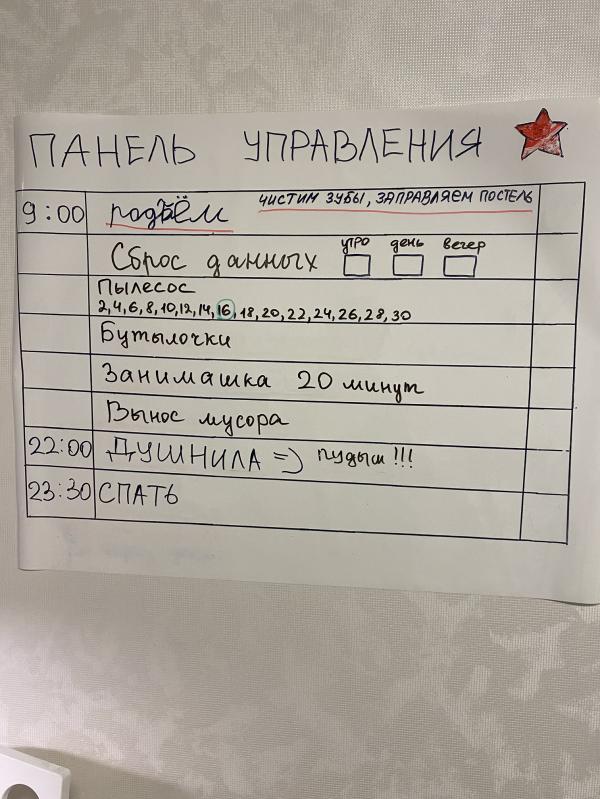 ПАНЕЛЬ УПРАВЛЕНИЯ
9:00 подъём ЧИСТИМ ЗУБЫ, ЗАПРАВЛЯЕМ ПОСТЕЛЬ
Сброс данных утро день вечер
Пылесос
2,4,6,8,10,12,14,16,18,20,22,24,26,28,30
Бутылочки
Занимашка 20 минут
Вынос мусора
22:00 ДУШНИЛА =) пудыш!!!
23:30 СПАТЬ